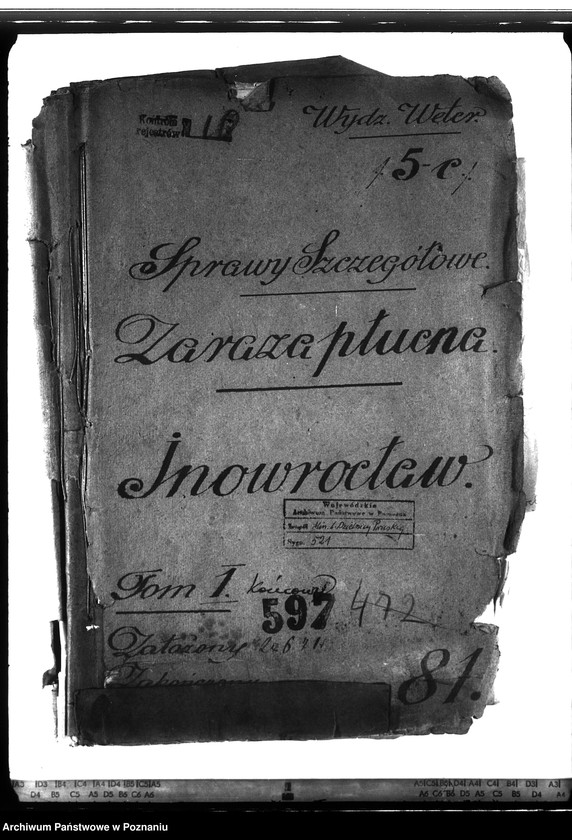 Kontrola
rejestrów
Wydz. Weter.
/5-c/.
Sprawy Szczegółowe.
Zaraza płucna.
Inowrocław.
Wojewódzkie
Archiwum Państwowe w Poznaniu
Zespół
Sygn. 521
Tom I. Końcowy
597 472
Założony
Zakończony
81.
Archiwum Państwowe w Poznaniu